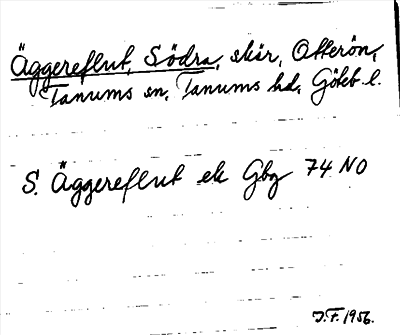 Äggereflut, Södra, skär, Otterön,
Tanums sn, Tanums hd, Göteb. l.
S. Äggereflut ek Gbg 74 NO
J.F. 1956.